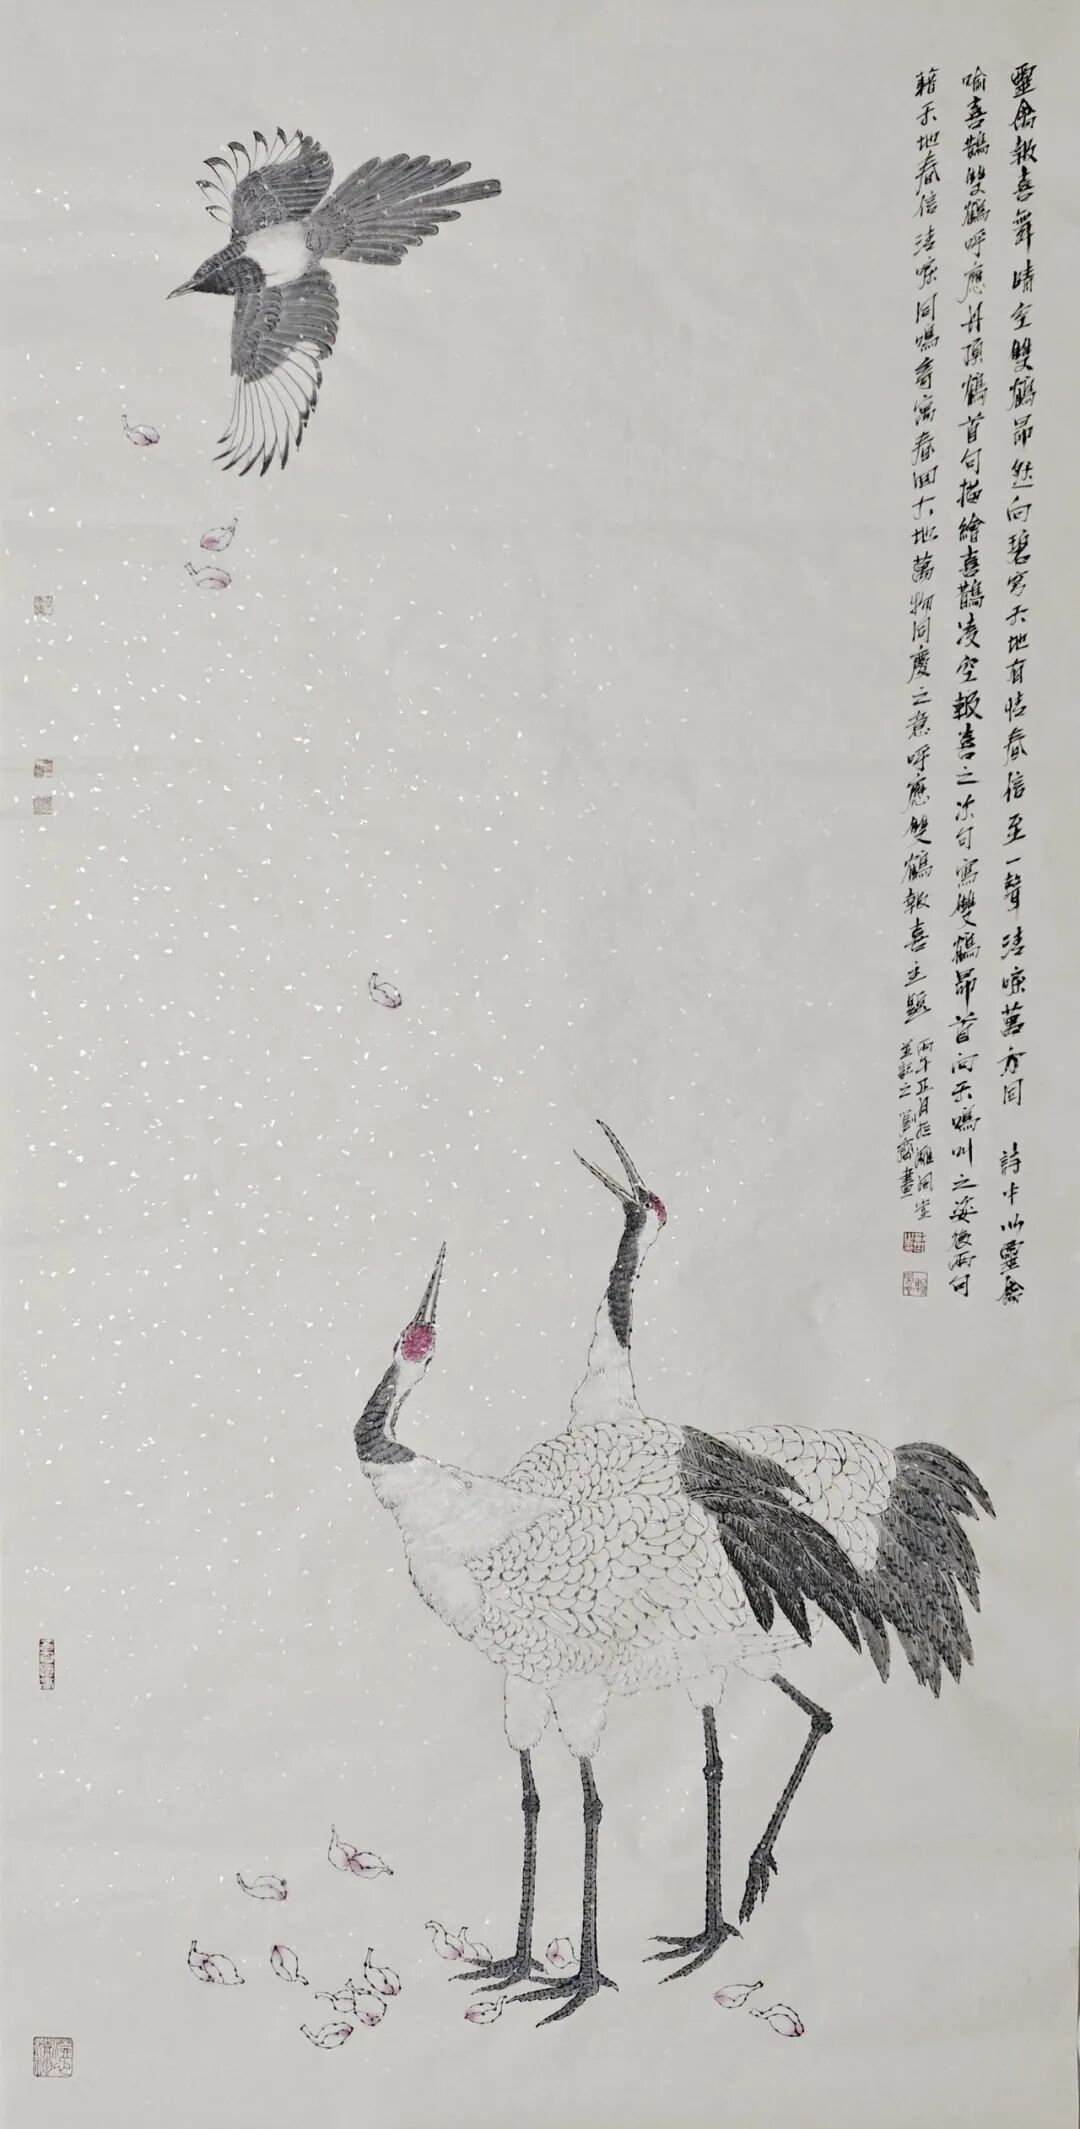 靈禽報喜舞晴空雙鶴昂然向碧穹天地有情春信至一聲清唳萬方同 詩中以靈禽
喻喜鵲雙鶴呼應丹頂鶴首句描繪喜鵲凌空報喜之次句寫雙鶴昂首向天鳴叫之姿後兩句
藉天地春信清唳同鳴寄寓春回大地萬物同慶之意呼應雙鶴報喜主題
丙午正月於雕同堂
並記之劉齋畫